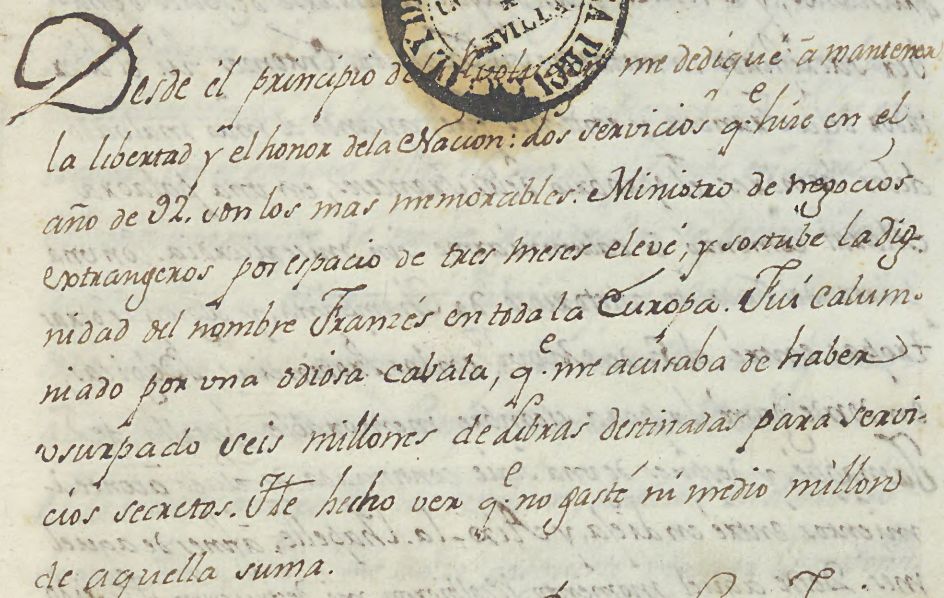 SEVILLA
Desde el principio de la Revolu me dediqué â mantener
la libertad y el honor dela Nacion: dos servicios q.e hize en el
año de 92. son los mas memorables. Ministro de negocios
extrangeros por espacio de tres meses elevé, y sostube la dig-
nidad del nombre Franzés en toda la Europa. Fuí calum-
niado por una odiosa cabala, q.e me acusaba de haber
usurpado seis millones de libras destinadas para servi-
cios secretos. He hecho ver q.e no gasté ni medio millon
de aquella suma.